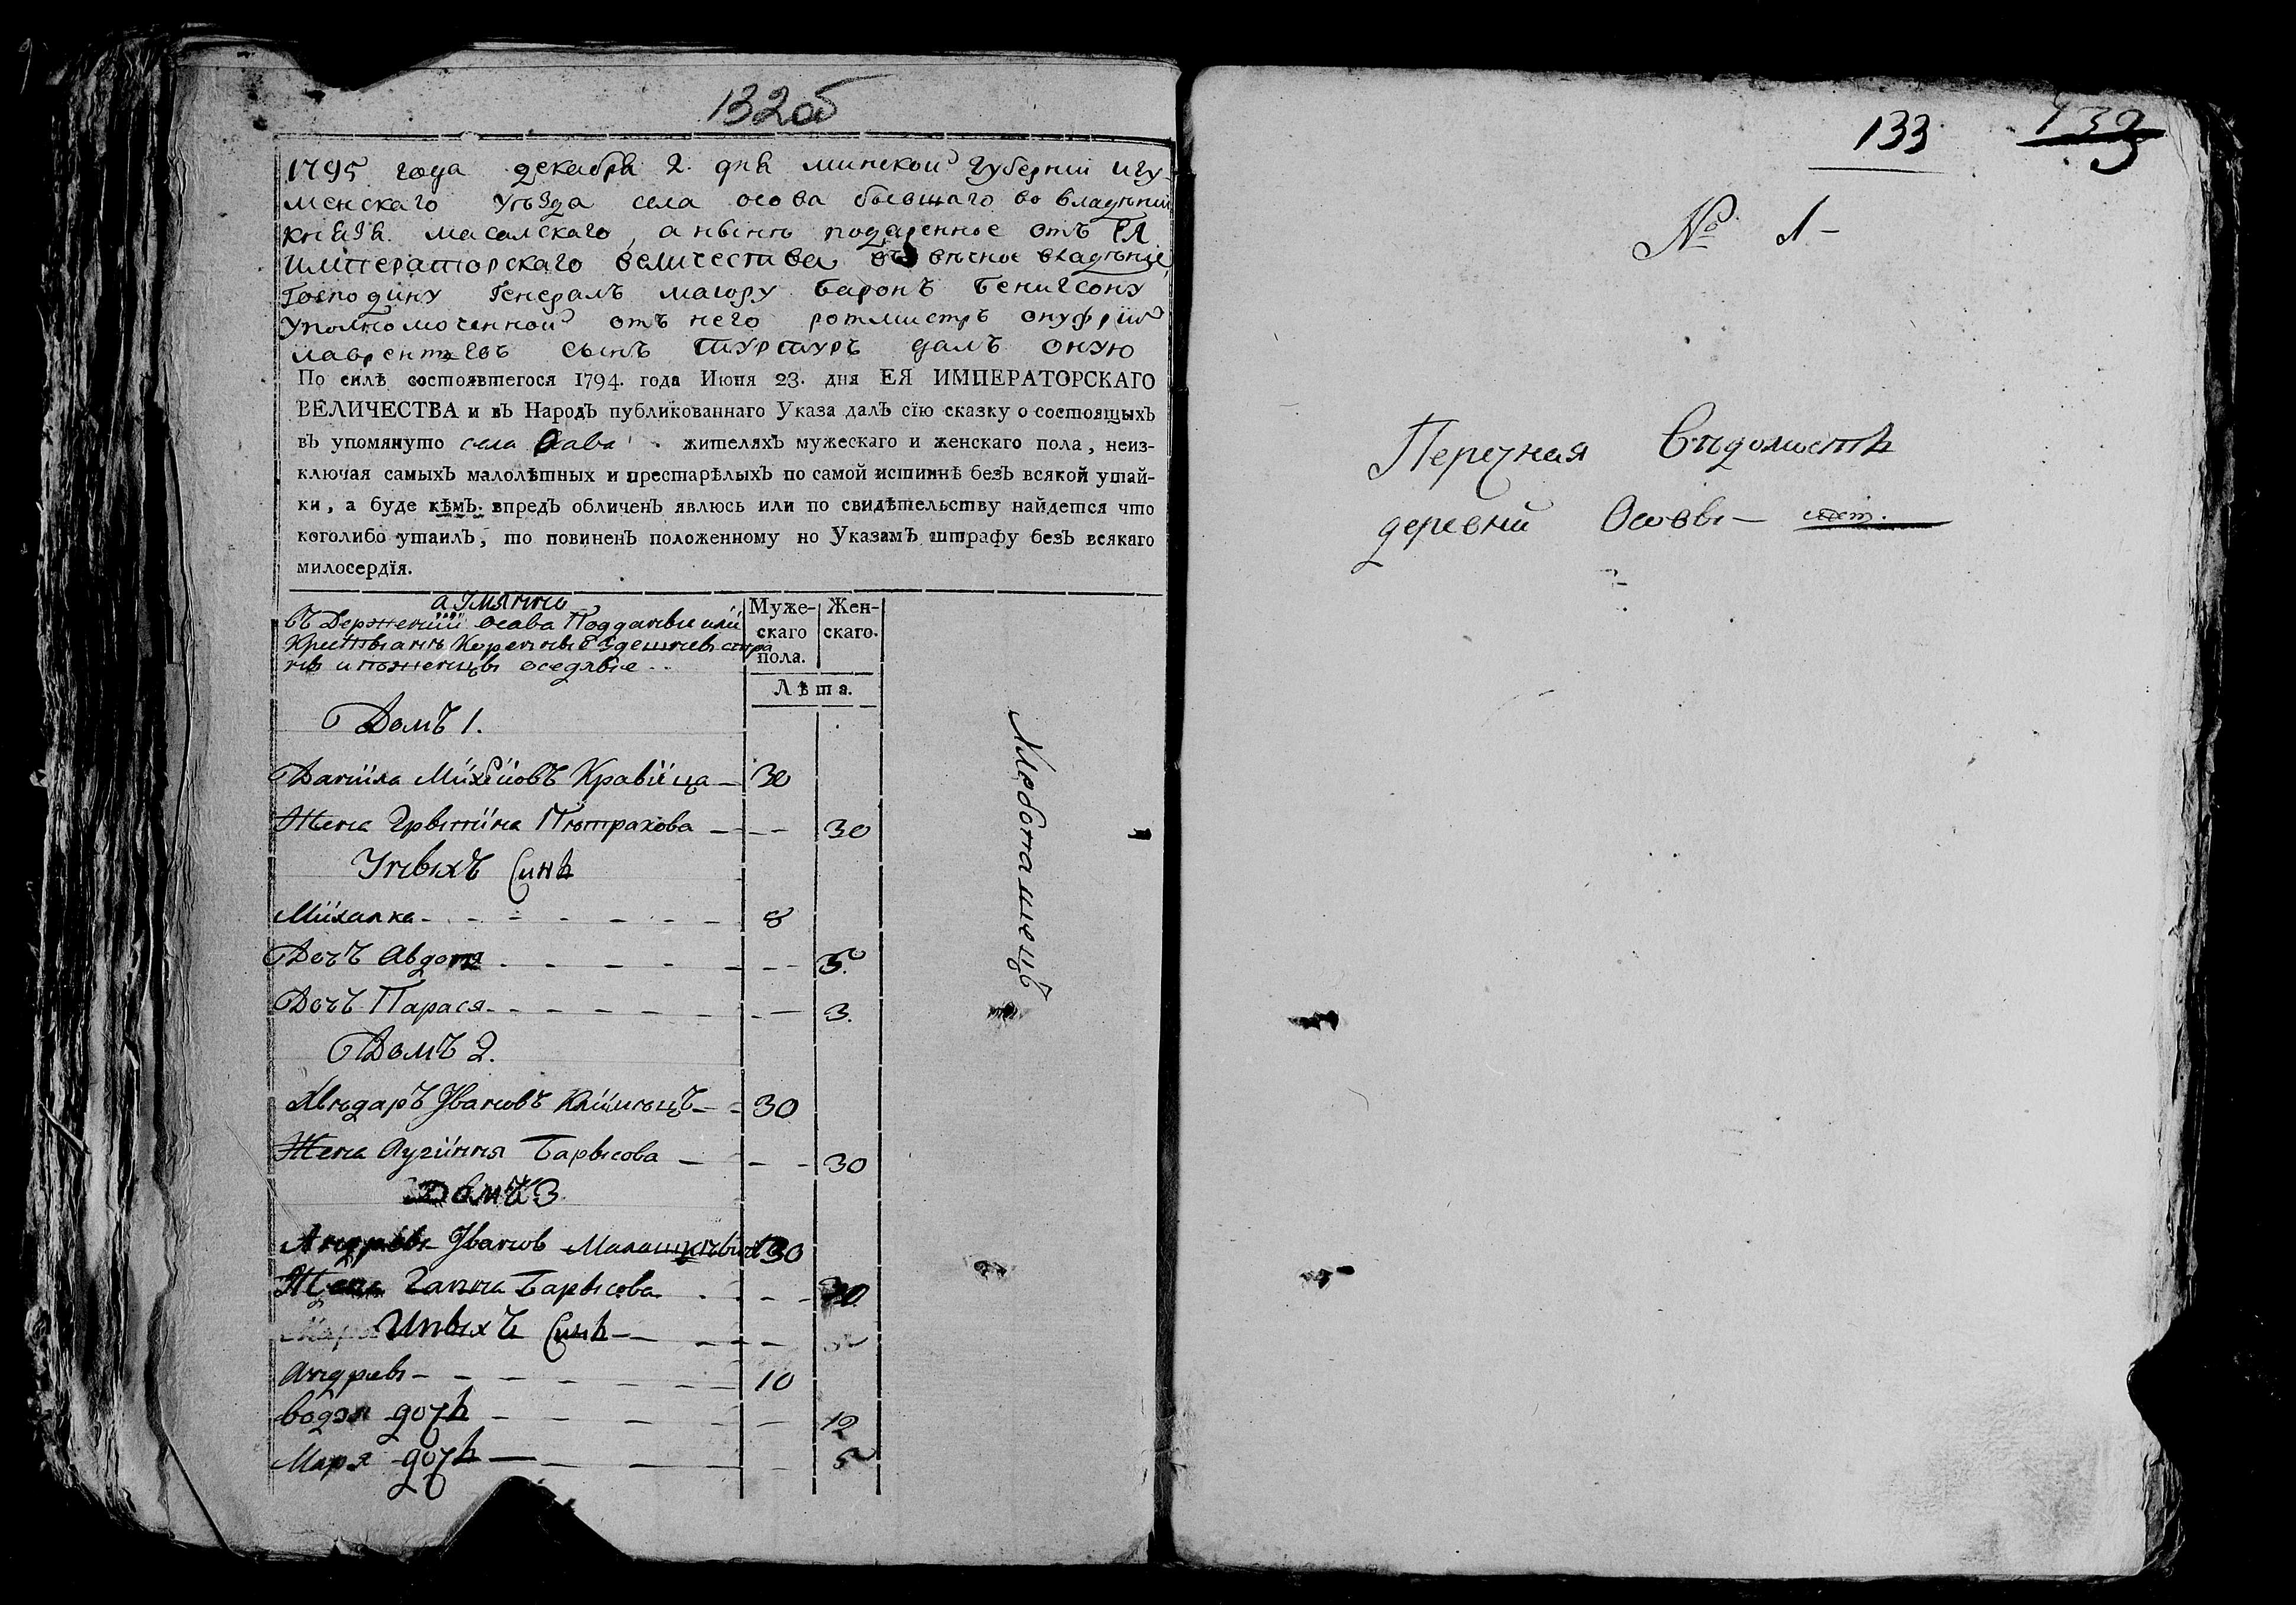 132об
1795 года декабря 2. дня минской губернии игу-
менскаго уѣзда села осова бывшаго во владѣнии
князя масалскаго, а нынѣ подаренное отъ ЕЯ
императорскаго величества въ вѣсное владѣние
Господину Генералъ маиору Баронъ Бенигсону
уполномоченной отъ него ротмистръ онуфрий
лаврентевъ сынъ далъ оную
По силѣ состоявшегося 1794. года Июня 23. дня ЕЯ ИМПЕРАТОРСКАГО
ВЕЛИЧЕСТВА и въ Народъ публикованнаго Указа далъ сїю сказку о состоящыхъ
въ упомянуто села Осава жителяхъ мужескаго и женскаго пола, неиз-
ключая самыхъ малолѣтных и престарѣлыхъ по самой истиннѣ безъ всякой утай-
ки, а буде кѣмъ впредъ обличенъ явлюсь или по свидѣтельству найдется что
коголибо утаилъ, то повиненъ положенному по Указамъ штрафу безъ всякаго
милосердїя.
а имянно
въ Держении Осава Подданые или
оседлые
Муже-
скаго
пола.
Жен-
скаго.
Лѣта.
Домъ 1.
Данїила Кравїица 30
Жена 30
Унихъ Синъ
Михалка 8
Дочъ Авдотя 5.
Дочъ Парася 3.
Домъ 2.
Хвѣдаръ Ивановъ Климѣцъ 30
Жена Лугиння Барысова 30
Домъ 3
Андрей Иванов 30
Жена Ганна Барысова 30
Инихъ Синъ
Андрей 10
дочь 12
Маря дочь 5
133
№ 1
Перечная Вѣдомость
деревни Осовы